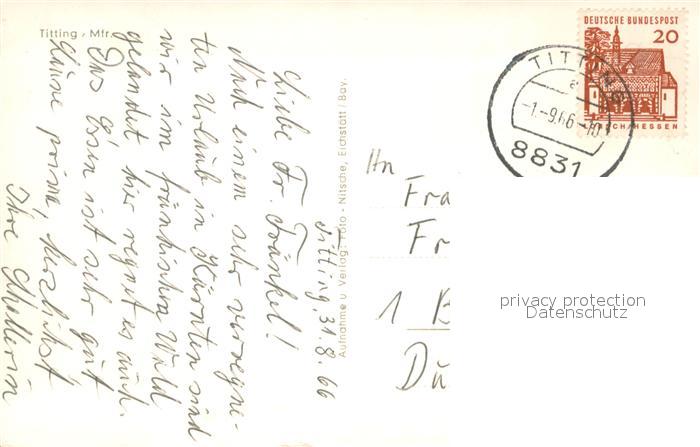 Titting, Mfr.
Aufnahme u. Verlag: Foto - Nitsche, Eichstätt / Bay.
Titting, 31.8.66
Liebe Fr. Fränkel!
Nach einem sehr verregne-
ten Urlaub in Kärnten sind
wir im fränkischen Wald
gelandet hier regnet es auch.
Das Essen ist sehr gut
Läuse prima, herzlichst
Ihre
DEUTSCHE BUNDESPOST
20
LORSCH/HESSEN
TITTING
a
-1.-9.66-10
8831
An
Fra
Fr
1 B
Du
privacy protection
Datenschutz